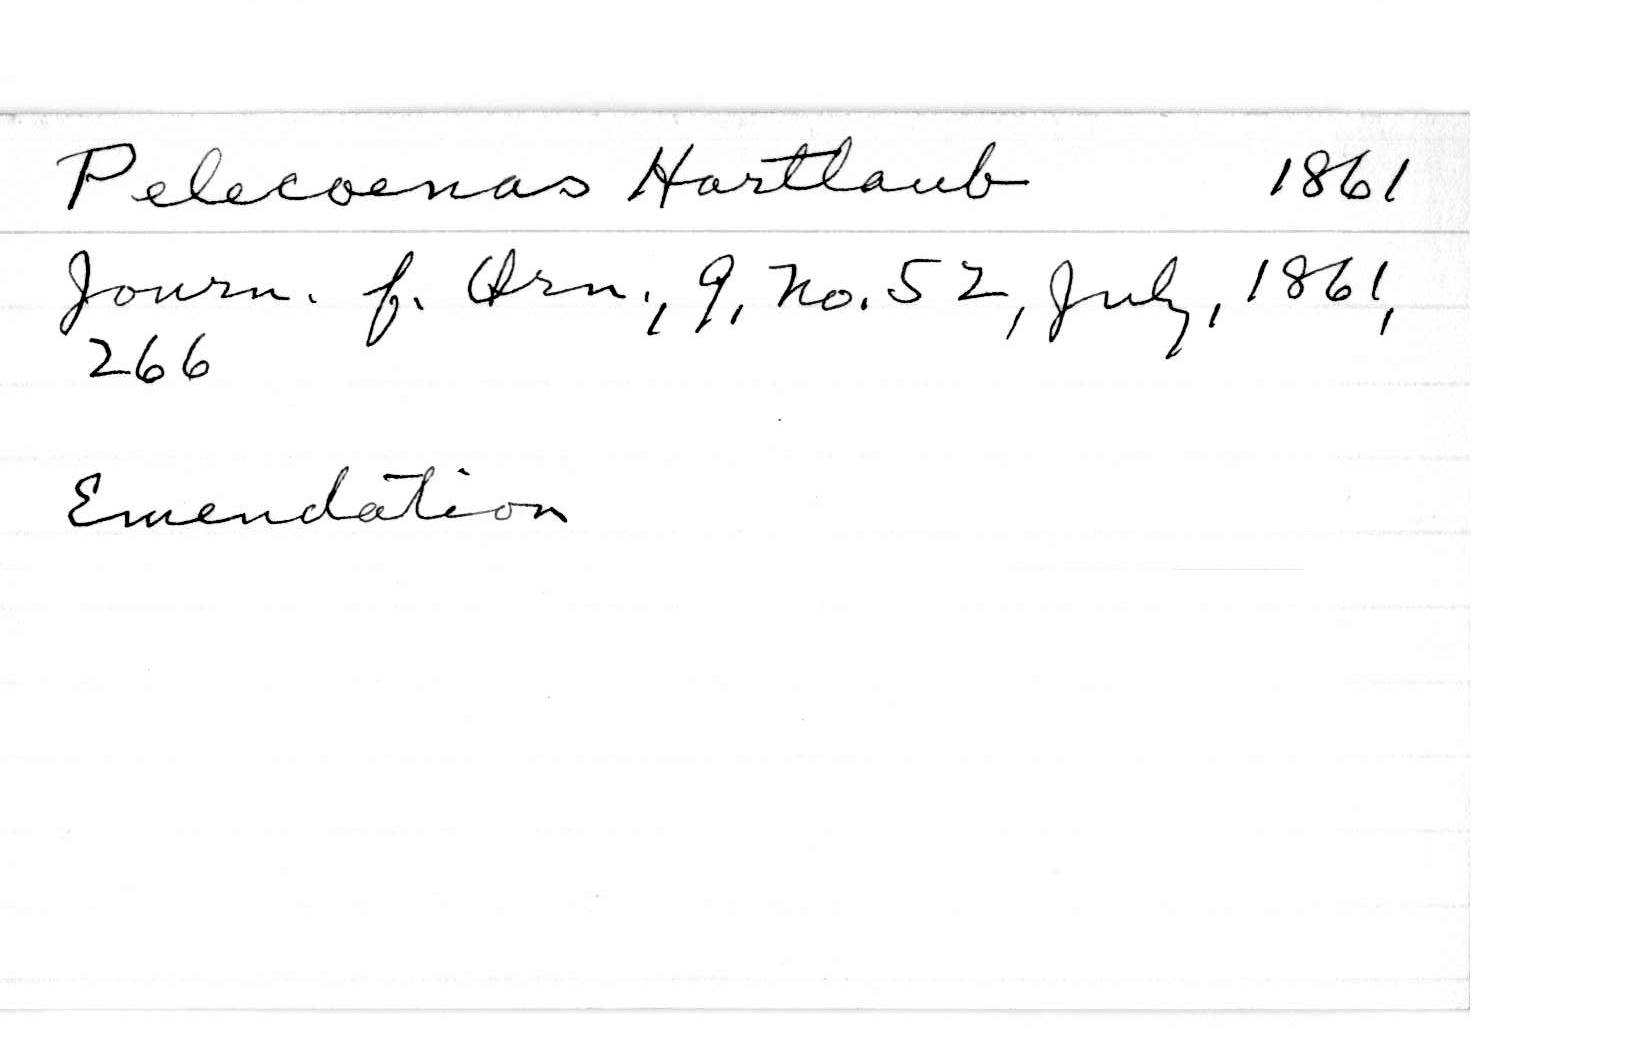 Pelecoenas Hartlaub 1861
Journ. f. Orn., 9, No. 52, July, 1861,
266
Emendation